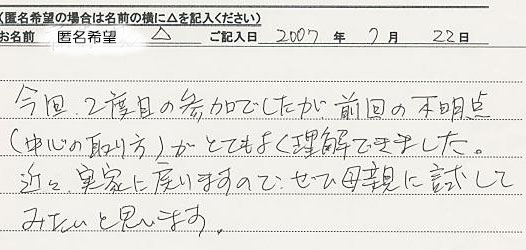 (匿名希望の場合は名前の横に△を記入ください)
お名前 匿名希望 △ ご記入日 2007 年 7 月 22日
今回、2度目の参加でしたが、前回の不明点
(中心の取り方)がとてもよく理解できました。
近々、実家に戻りますので、ぜひ母親に試して
みたいと思います。